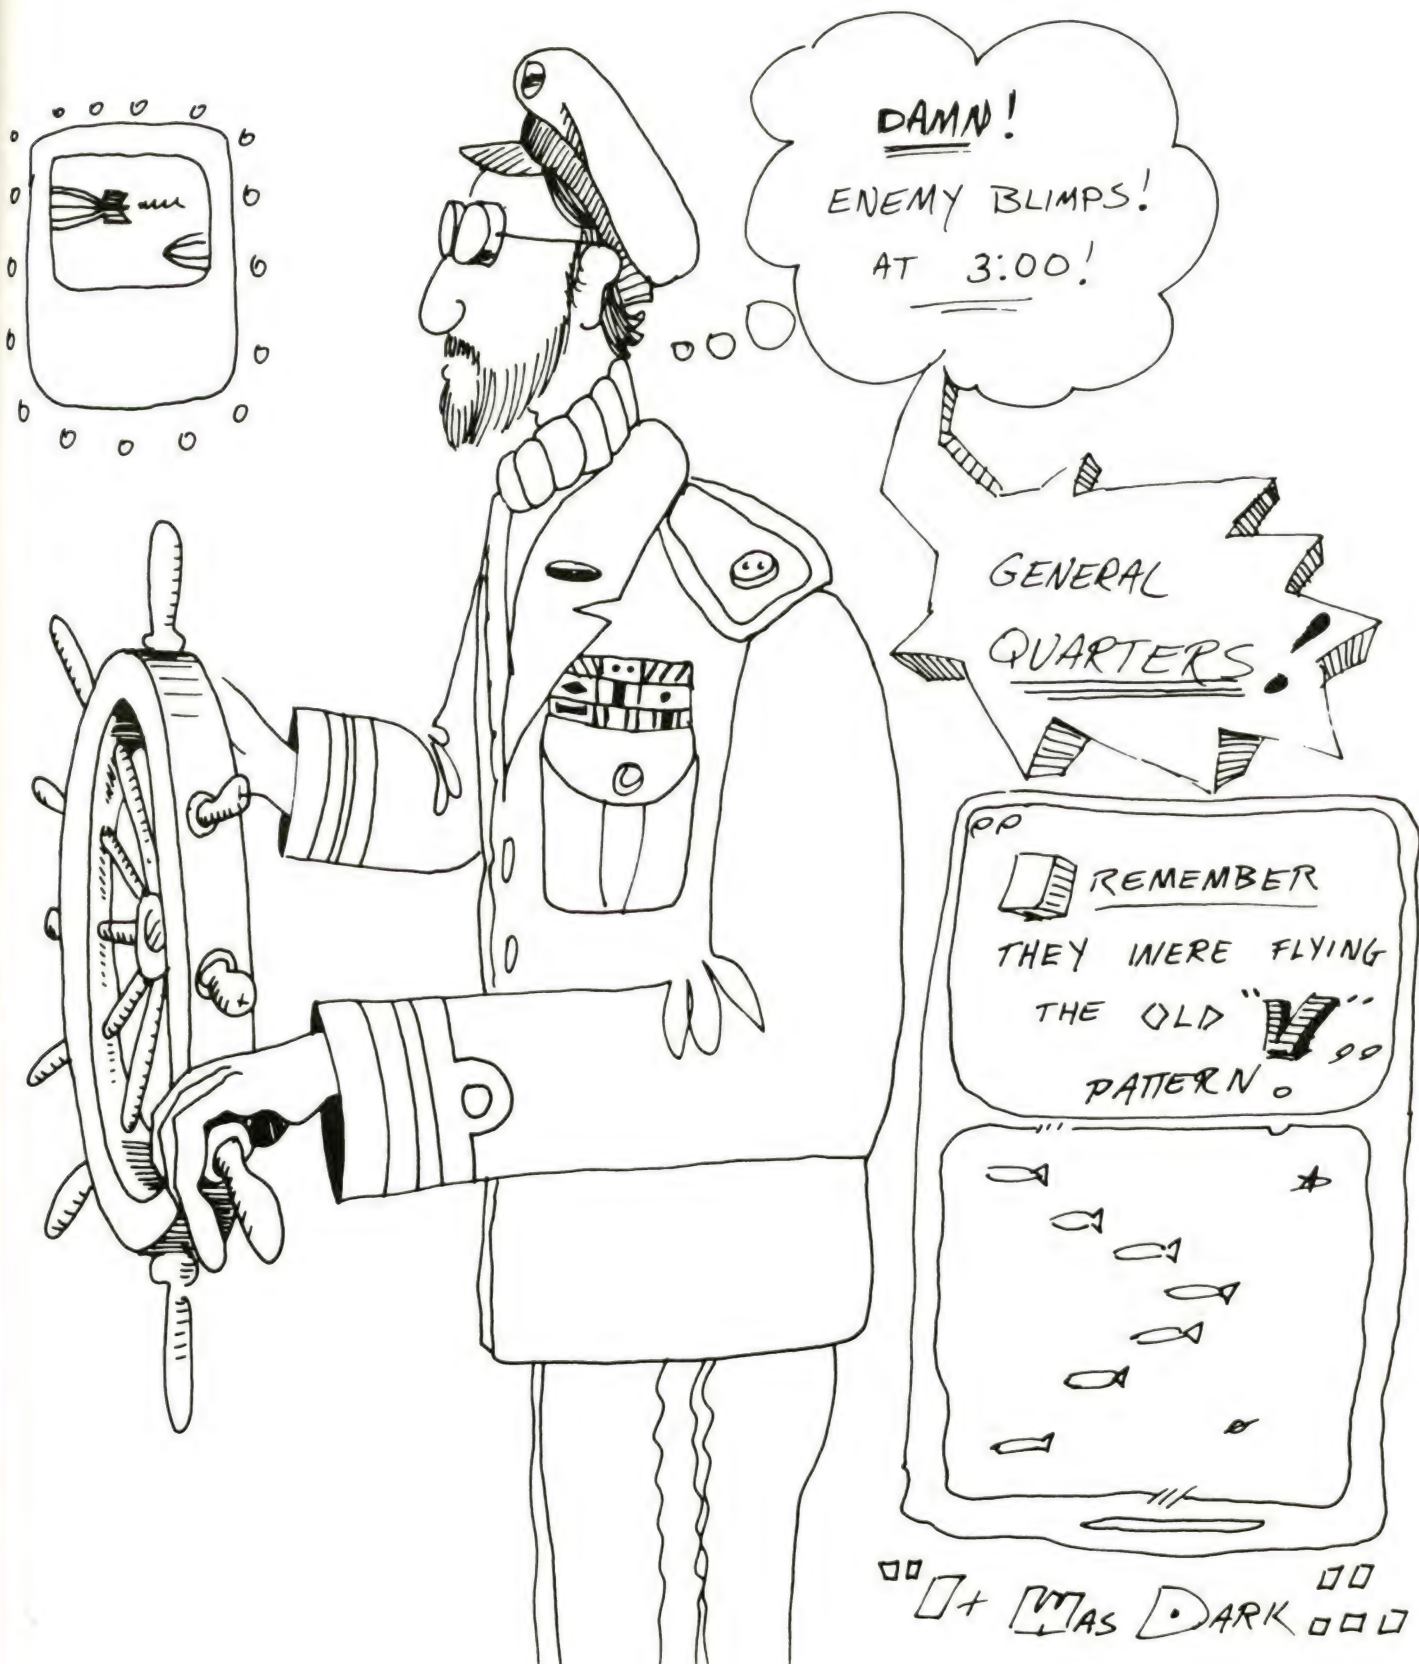 DAMN!
ENEMY BLIMPS!
AT 3:00!
GENERAL
QUARTERS!
"I REMEMBER
THEY WERE FLYING
THE OLD "V"
PATTERN.
"It Was Dark"...